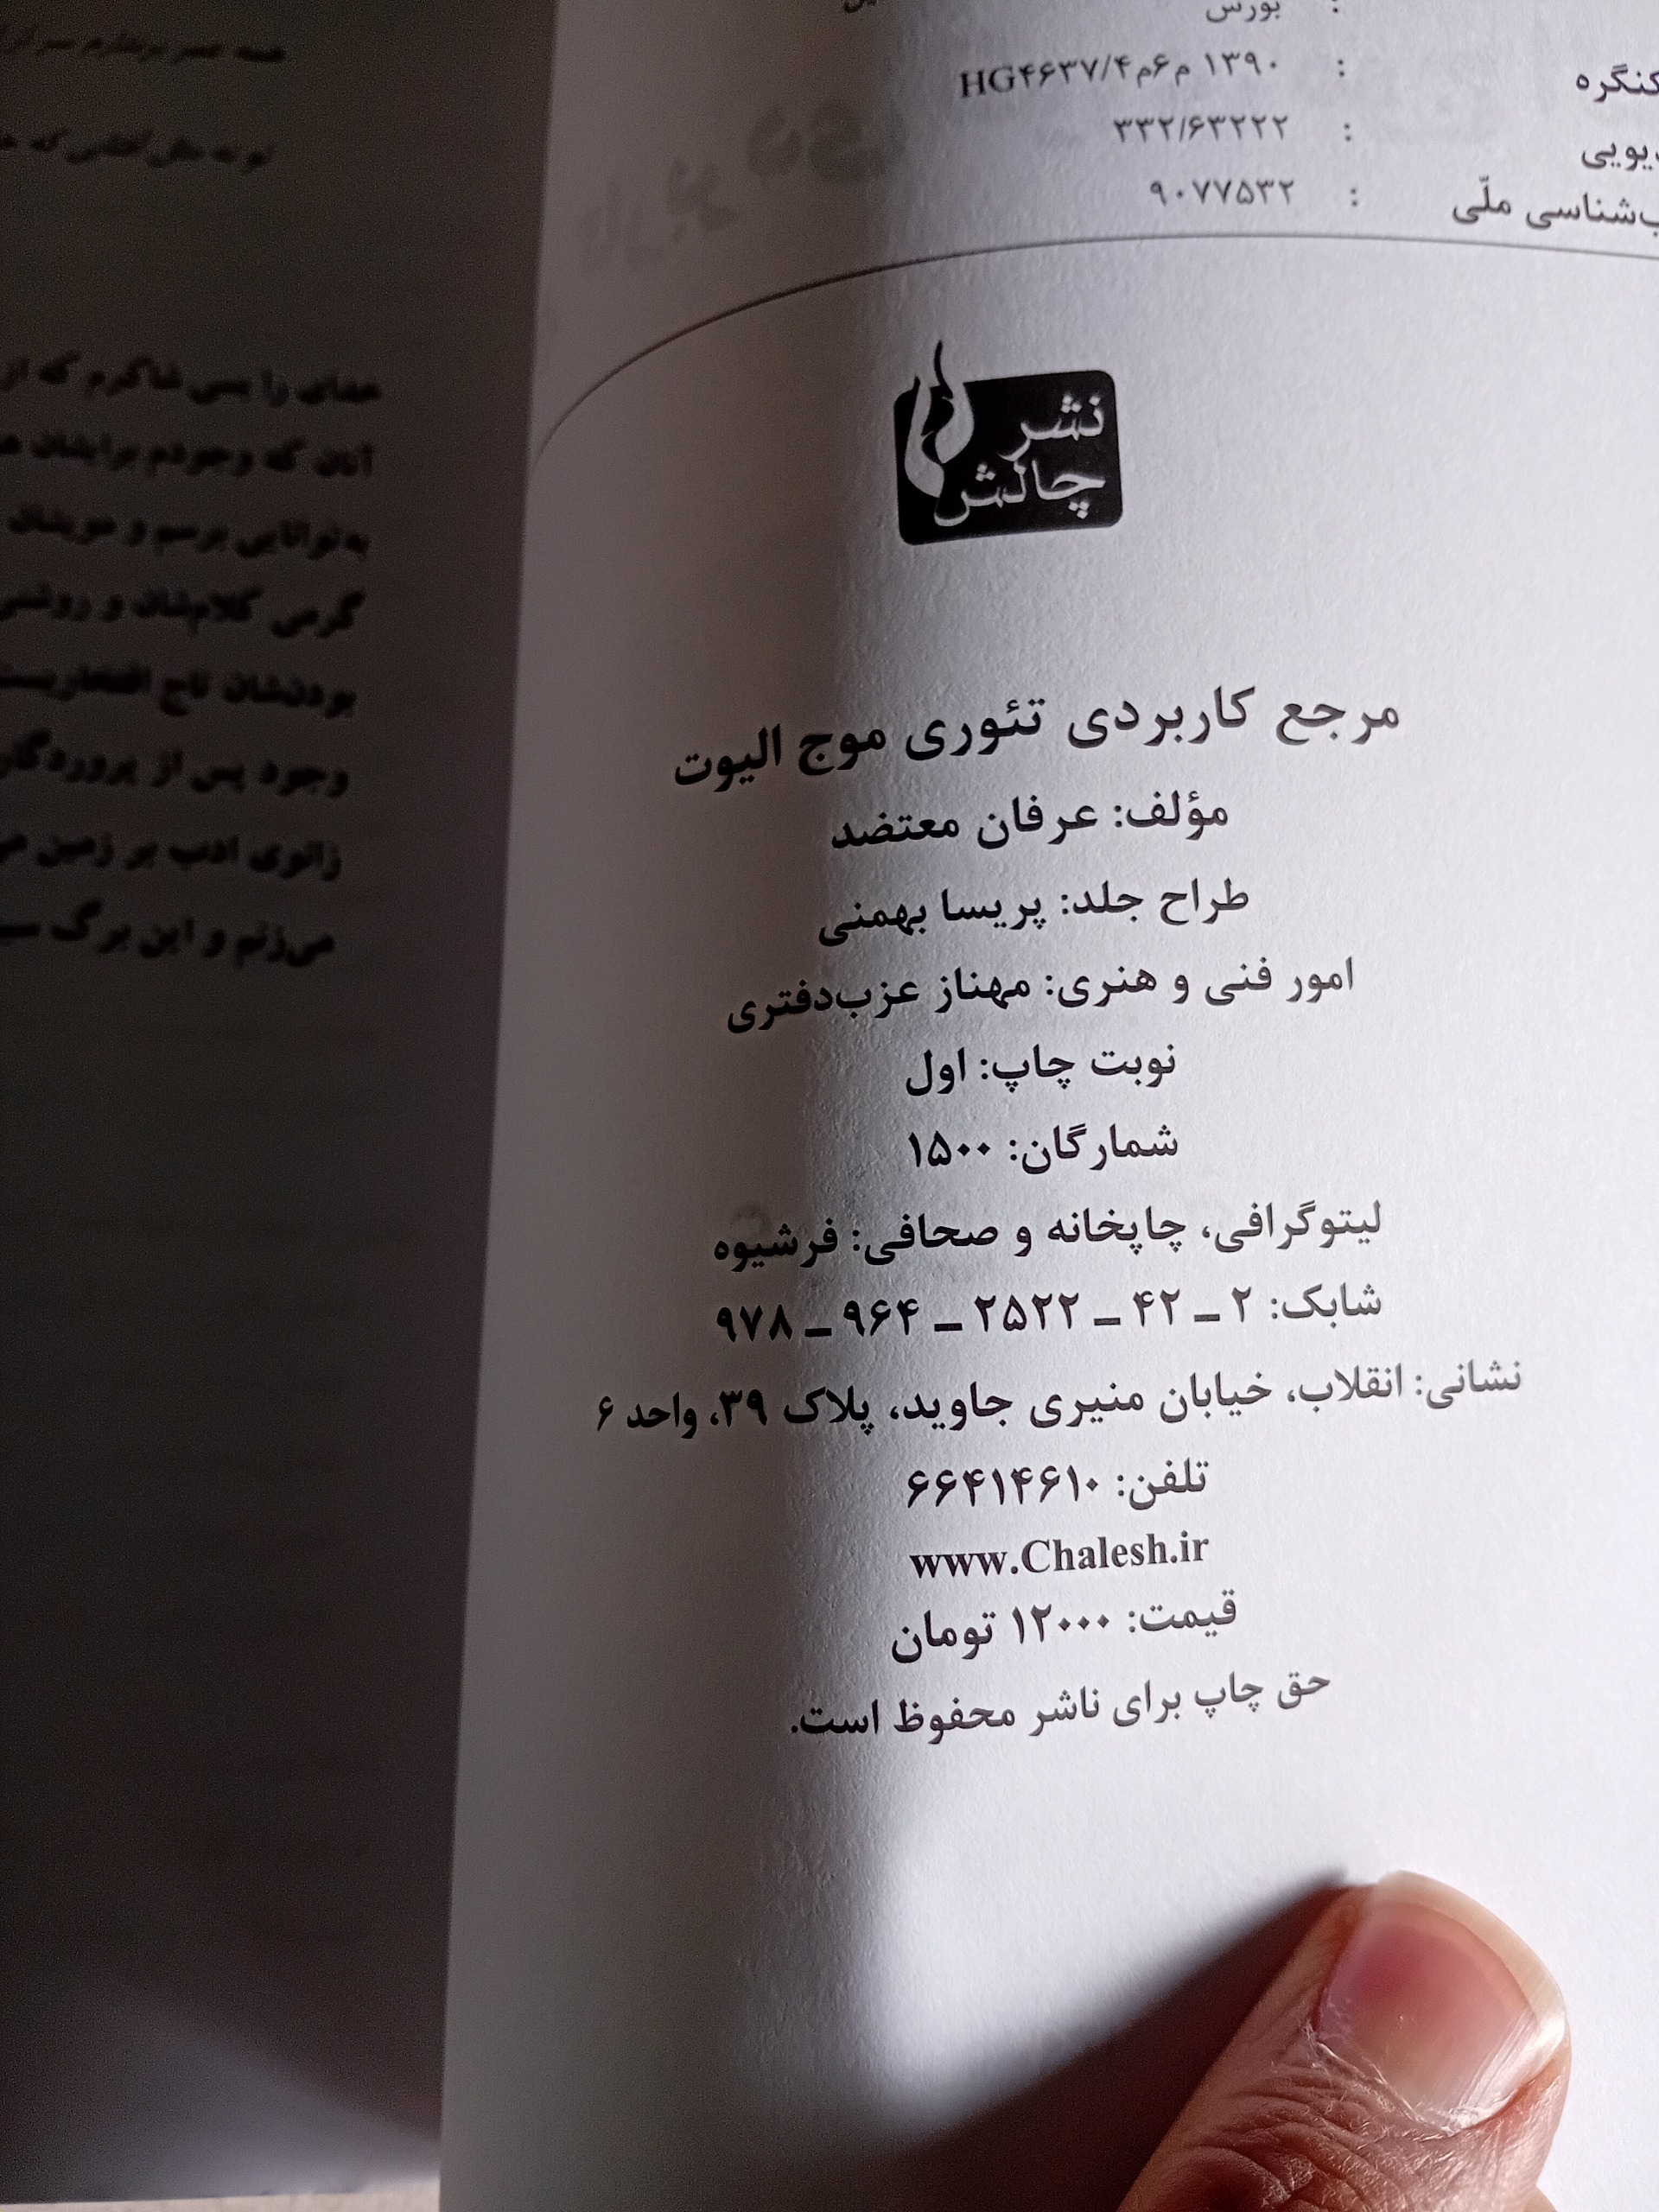 بورس
کنگره : ۱۳۹۰ ۴م۶م/HG۴۶۳۷
یویی : ۳۳۲/۶۳۲۲۲
ب‌شناسی ملّی : ۹۰۷۷۵۳۲
نشر
چالش
مرجع کاربردی تئوری موج الیوت
مؤلف: عرفان معتضد
طراح جلد: پریسا بهمنی
امور فنی و هنری: مهناز عزب‌دفتری
نوبت چاپ: اول
شمارگان: ۱۵۰۰
لیتوگرافی، چاپخانه و صحافی: فرشیوه
شابک: ۲ ـ ۴۲ ـ ۲۵۲۲ ـ ۹۶۴ ـ ۹۷۸
نشانی: انقلاب، خیابان منیری جاوید، پلاک ۳۹، واحد ۶
تلفن: ۶۶۴۱۴۶۱۰
www.Chalesh.ir
قیمت: ۱۲۰۰۰ تومان
حق چاپ برای ناشر محفوظ است.
را بسی شاکرم که از
آنان که وجودم برایشان
به‌توانایی برسم و مویشان
گرمی کلام‌شان و روشنی
بودن‌شان تاج افتخاریست
وجود پس از پروردگار
زانوی ادب بر زمین
می‌زنم و این برگ